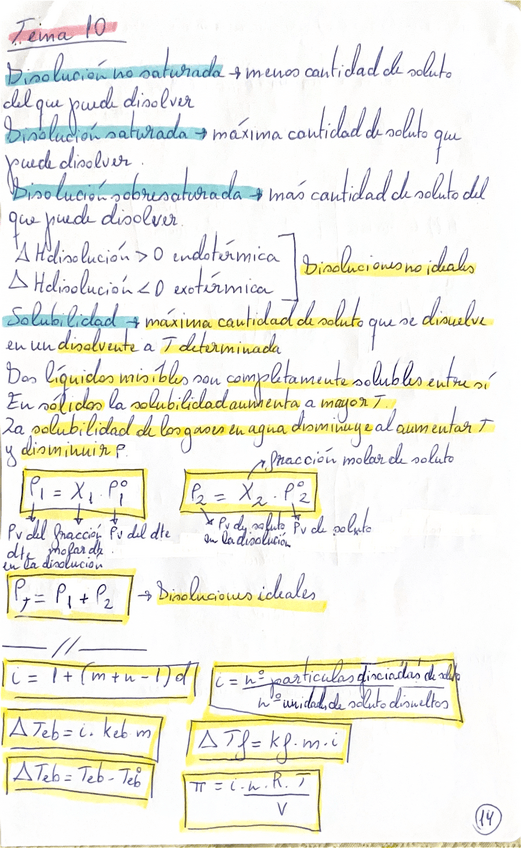 Tema 10
Disolución no saturada → menos cantidad de soluto
del que puede disolver
Disolución saturada → máxima cantidad de soluto que
puede disolver.
Disolución sobresaturada → más cantidad de soluto del
que puede disolver.
ΔHdisolución > 0 endotérmica
ΔHdisolución < 0 exotérmica
Disoluciones no ideales
Solubilidad → máxima cantidad de soluto que se disuelve
en un disolvente a T determinada
Dos líquidos misibles son completamente solubles entre sí
En sólidos la solubilidad aumenta a mayor T.
La solubilidad de los gases en agua disminuye al aumentar T
y disminuir P.
fracción molar de soluto
P1 = X1 · P1°
P2 = X2 · P2°
Pv del dte en la disolución
fracción molar dte.
Pv del dte
Pv de soluto en la disolución
Pv de soluto
PT = P1 + P2 → Disoluciones ideales
— // —
i = 1 + (m + n - 1) d
i = nº partículas disociadas de soluto / nº unidad de soluto disueltos
ΔTeb = i · keb m
ΔTf = kf · m · i
ΔTeb = Teb - Teb°
π = i · n · R · T / V
14